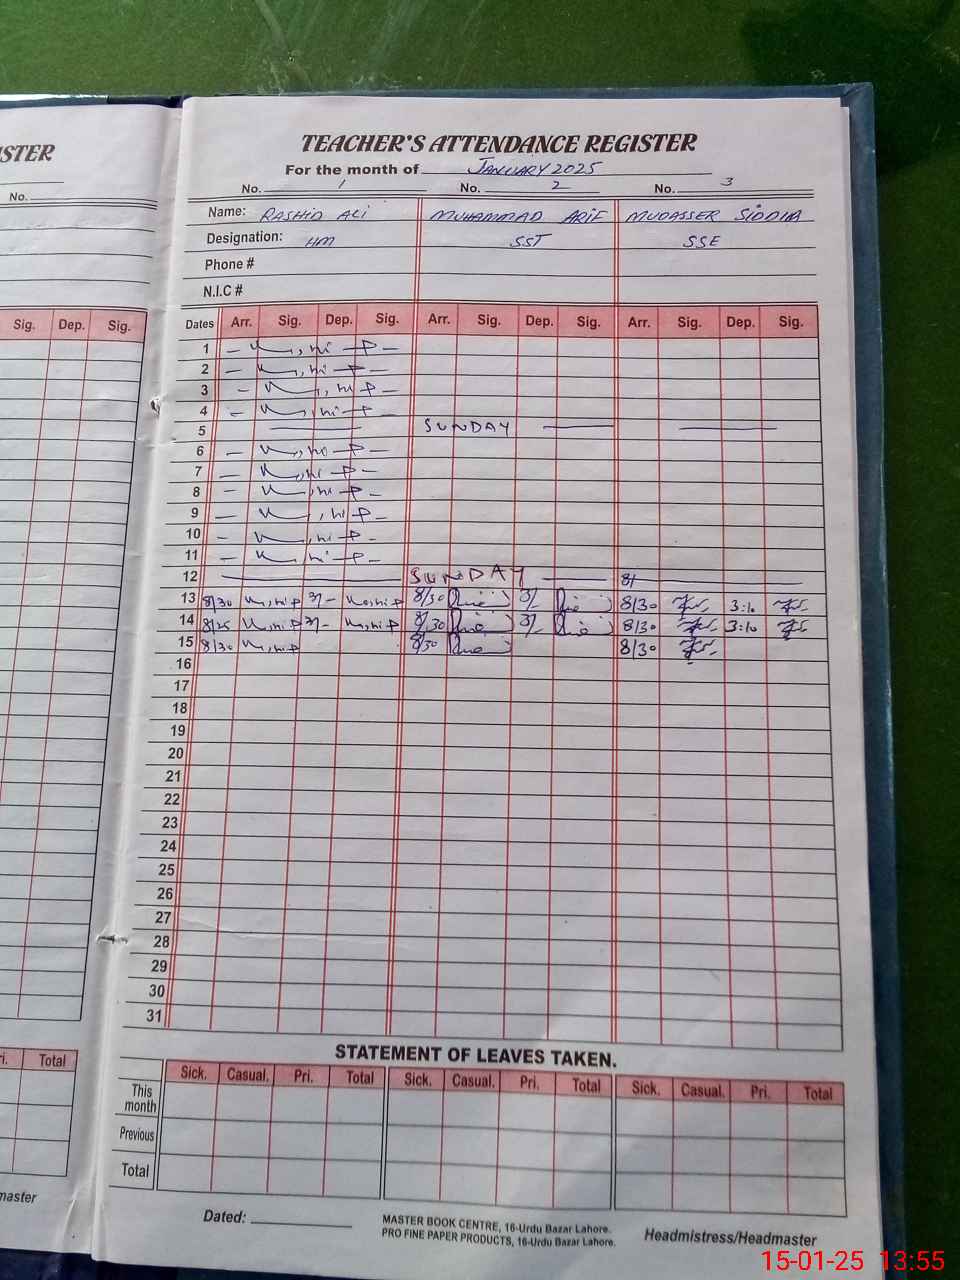 STER
TEACHER'S ATTENDANCE REGISTER
For the month of JANUARY 2025
No.
No. 1 No. 2 No. 3
Name: RASHID ALI MUHAMMAD ARIF MUDASSER SIDDIM
Designation: HM SST SSE
Phone #
N.I.C #
Sig. Dep. Sig.
Dates Arr. Sig. Dep. Sig. Arr. Sig. Dep. Sig. Arr. Sig. Dep. Sig.
1
2
3
4
5 SUNDAY
6
7
8
9
10
11
12 SUNDAY 8/
13 8/30 3/- 8/30 3/- 8/30 3:10
14 8/25 3/- 8/30 3/- 8/30 3:10
15 8/30 8/30 8/30
16
17
18
19
20
21
22
23
24
25
26
27
28
29
30
31
STATEMENT OF LEAVES TAKEN.
ri. Total
Sick. Casual. Pri. Total Sick. Casual. Pri. Total Sick. Casual. Pri. Total
This month
Previous
Total
master
Dated:
MASTER BOOK CENTRE, 16-Urdu Bazar Lahore.
PRO FINE PAPER PRODUCTS, 16-Urdu Bazar Lahore.
Headmistress/Headmaster
15-01-25 13:55